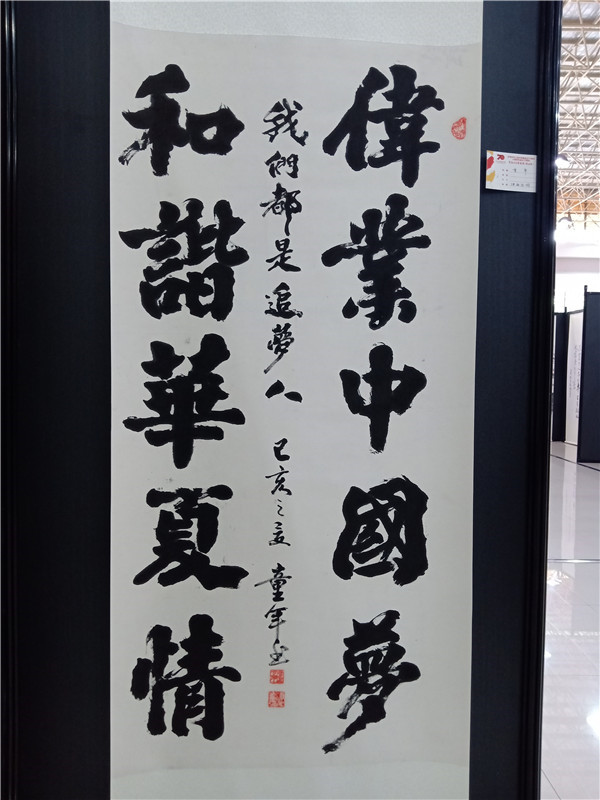 偉業中國夢
我們都是追夢人 己亥之夏 童年書
和諧華夏情